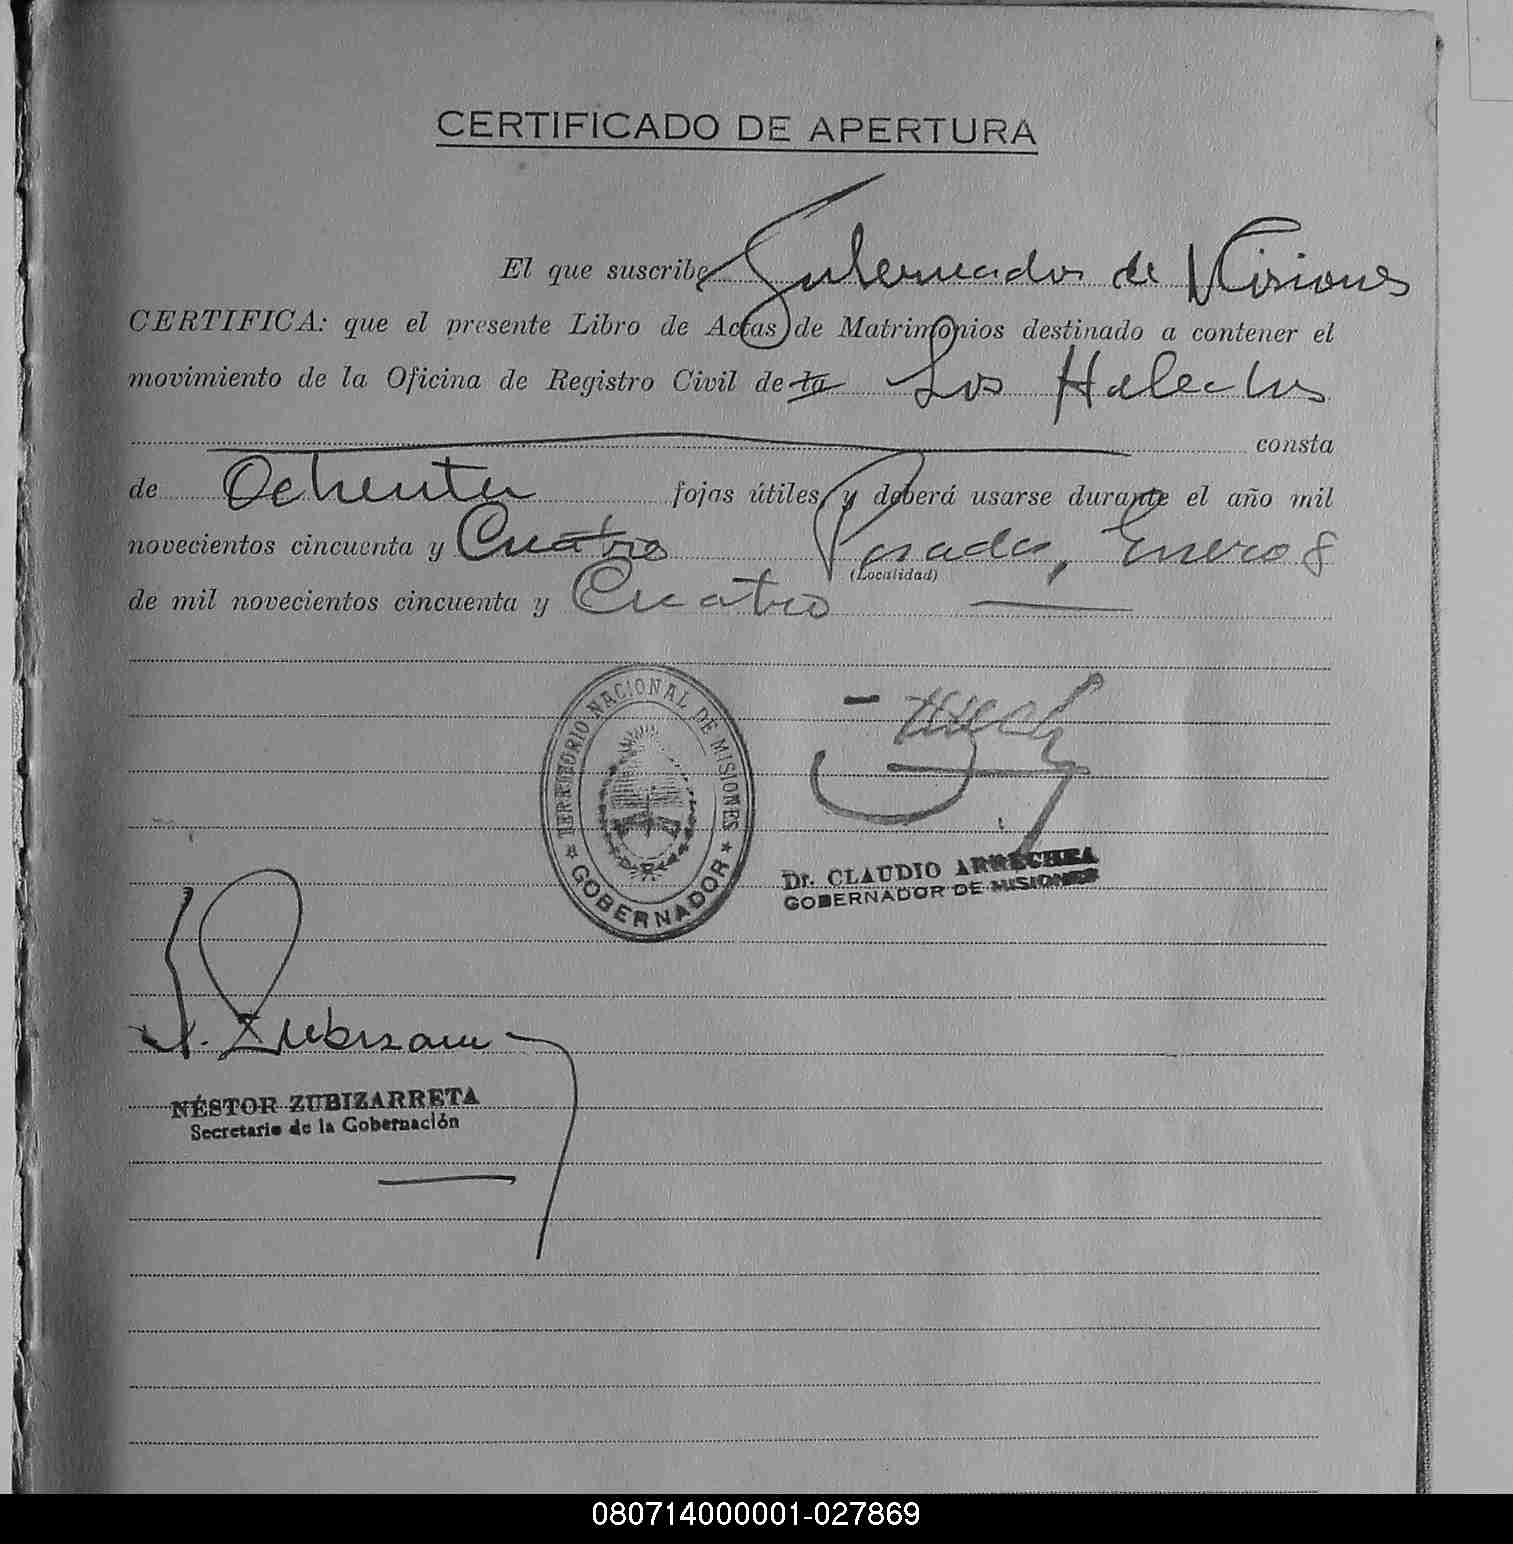 CERTIFICADO DE APERTURA
El que suscribe Gobernador de Misiones
CERTIFICA: que el presente Libro de Actas de Matrimonios destinado a contener el
movimiento de la Oficina de Registro Civil de la Los Helechos
consta
de Ochenta fojas útiles, y deberá usarse durante el año mil
novecientos cincuenta y Cuatro Posadas, Enero 8
(Localidad)
de mil novecientos cincuenta y Cuatro
TERRITORIO NACIONAL DE MISIONES
GOBERNADOR
Dr. CLAUDIO ARRECHEA
GOBERNADOR DE MISIONES
N. Zubizarreta
NÉSTOR ZUBIZARRETA
Secretario de la Gobernación
080714000001-027869